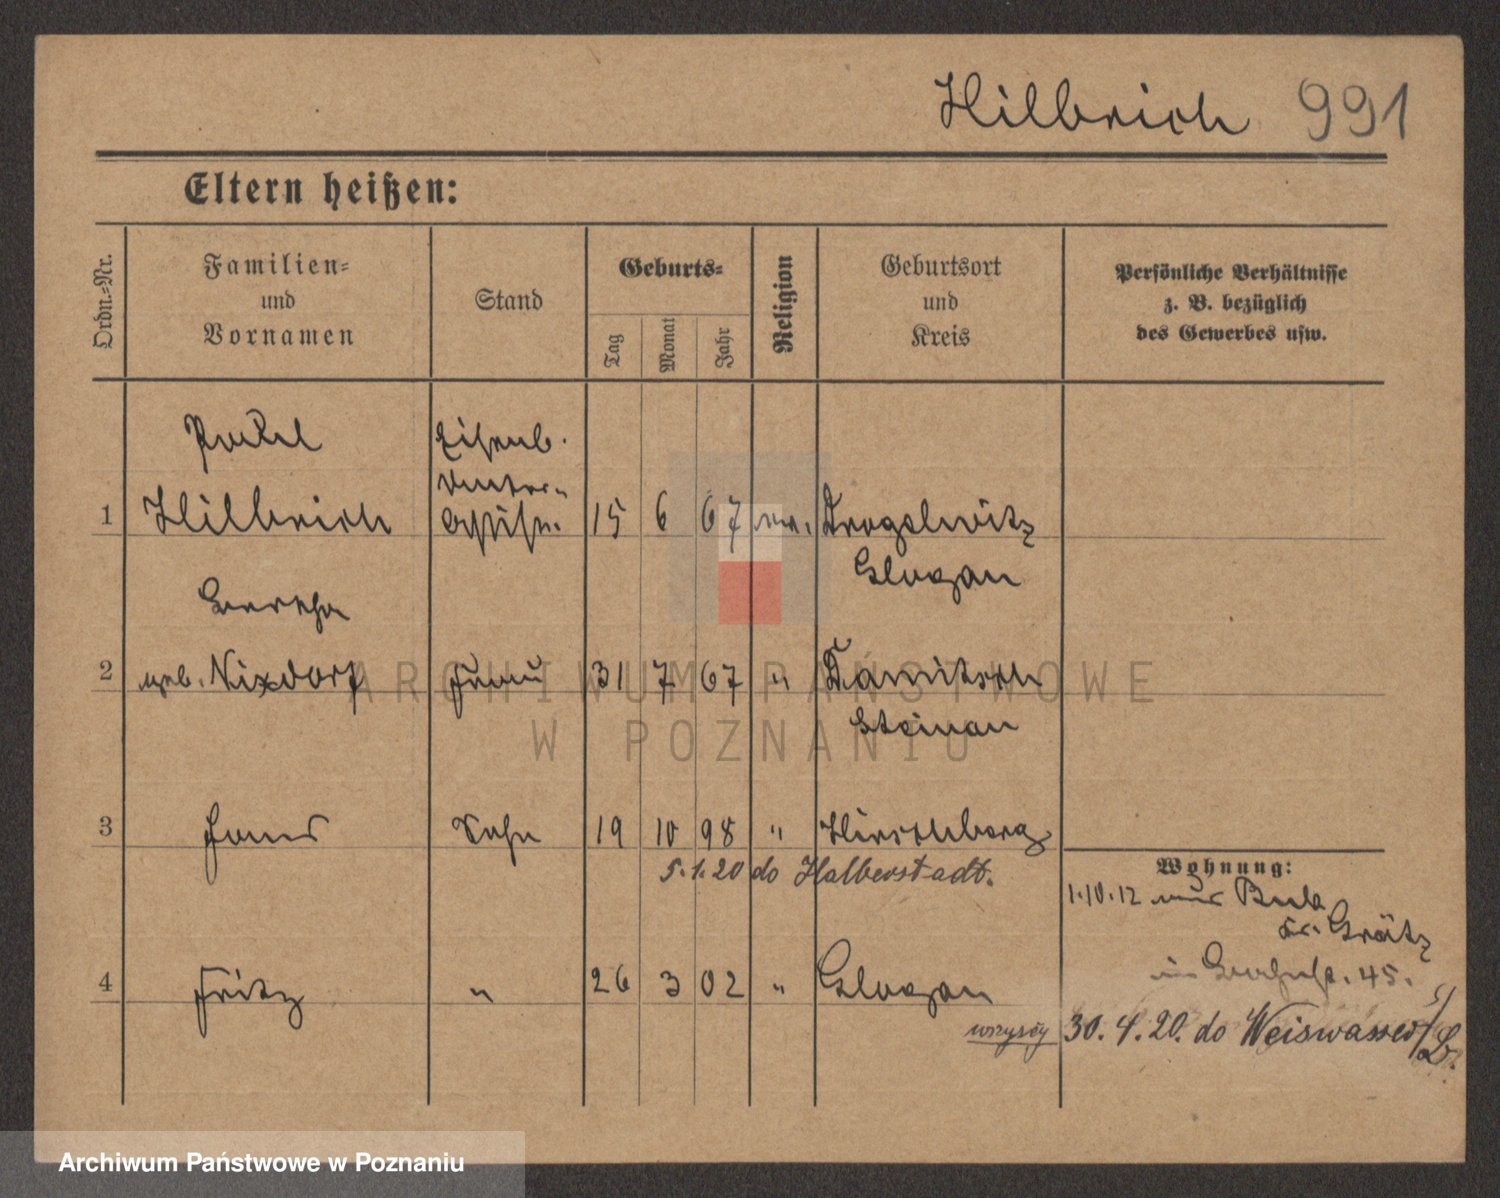 Hilbrich 991
Eltern heißen:
Ordn.-Nr.
Familien-
und
Vornamen
Stand
Geburts-
Tag
Monat
Jahr
Religion
Geburtsort
und
Kreis
Persönliche Verhältnisse
z. B. bezüglich
des Gewerbes usw.
Paul Eisenb.
1 Hilbrich 15 6 67 ev.
Glogau
Bertha
2 geb. Nixdorf Frau 31 7 67 "
Steinau
3 Hans Sohn 19 10 98 " Hirschberg
5.1.20 do Halberstadt.
Wohnung:
1.10.12 aus Buk
Kr. Grätz
45.
4 Fritz " 26 3 02 " Glogau
wszyscy 30.4.20. do Weiswasser
ARCHIWUM PAŃSTWOWE
W POZNANIU
Archiwum Państwowe w Poznaniu